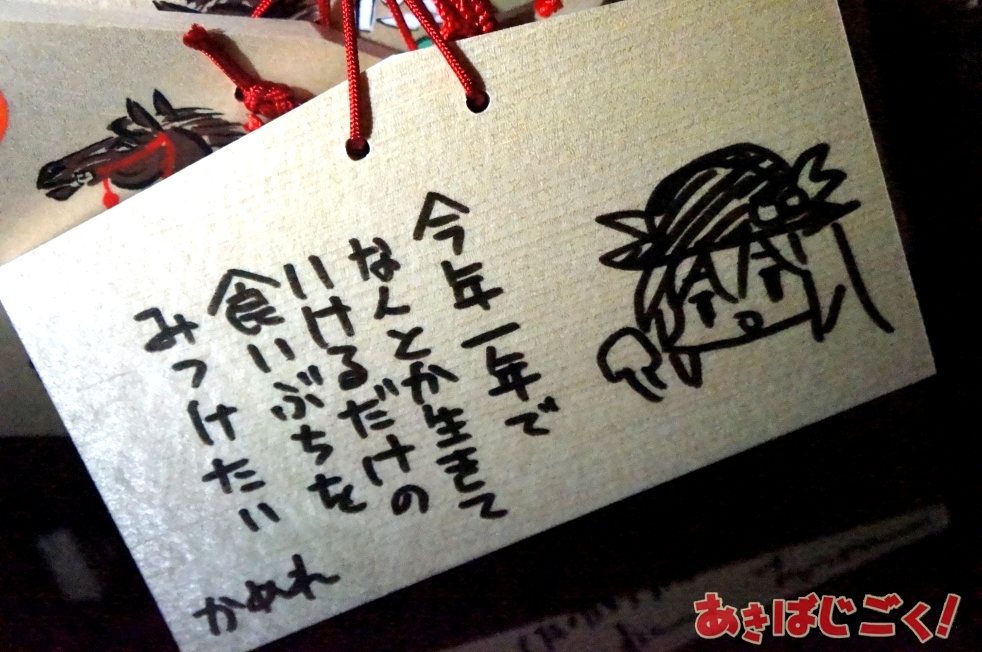 今年一年で
なんとか生きて
いけるだけの
食いぶちを
みつけたい
かぬれ
あきばじごく!